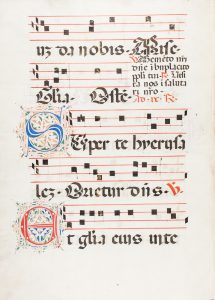 uz da nobis. Mise
Memeto nri
dne i bn placito
ppli tui. R
nos i saluta
ri
Glia. Oste
Super te hyerusa
lez. Orietur dns. V
Et glia eius in te